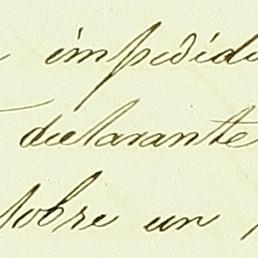 impedido
declarante
sobre un